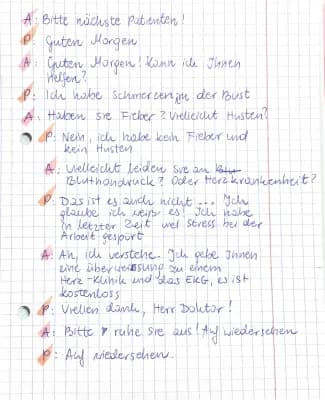 A: Bitte nächste Patienten!
P: Guten Morgen
A: Guten Morgen! Kann ich Ihnen
helfen?
P: Ich habe Schmerzen in der Bust
A: Haben sie Fieber? Vielleicht Husten?
P: Nein, ich habe kein Fieber und
kein Husten
A: Vielleicht leiden Sie an
Bluthondruck? Oder Herzkrankenheit?
P: Das ist es auch nicht... Ich
glaube ich weiß es! Ich habe
in letzter Zeit viel stress bei der
Arbeit gespürt
A: Ah, ich verstehe. Ich gebe Ihnen
eine überweisung zu einem
Herz-Klinik und das EKG, es ist
kostenloss
P: Vielen dank, Herr Doktor!
A: Bitte ruhe sie aus! Auf wiedersehen
P: Auf wiedersehen.